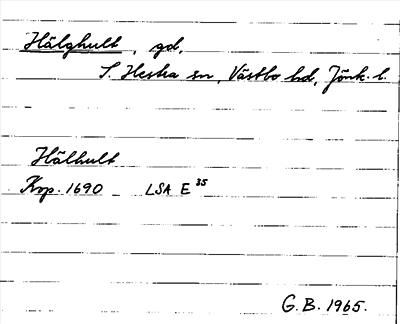 Hälghult, gd,
S. Hestra sn, Västbo hd, Jönk. l.
Hälhult
Kop. 1690 LSA E 35
G.B. 1965.